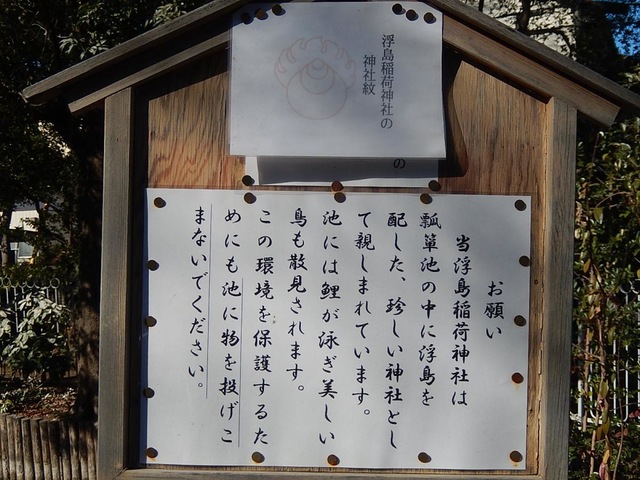 浮島稲荷神社の
神社紋
の
お願い
当浮島稲荷神社は
瓢箪池の中に浮島を
配した、珍しい神社とし
て親しまれています。
池には鯉が泳ぎ美しい
鳥も散見されます。
この環境を保護するた
めにも池に物を投げこ
まないでください。